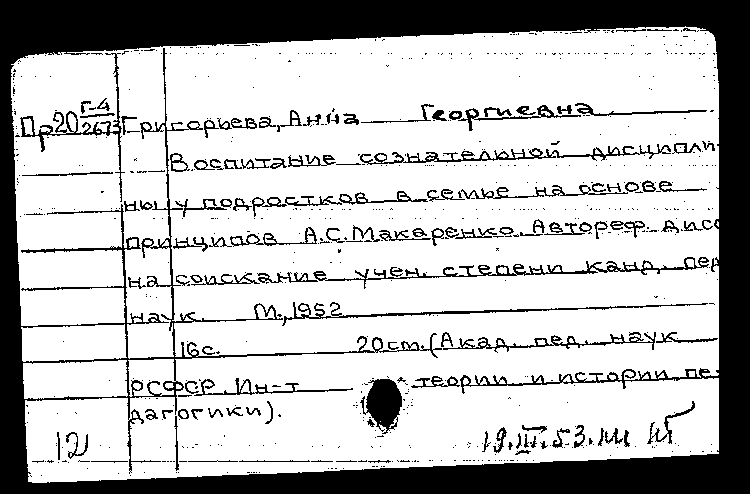 Пр20 Г-4/2673 Григорьева, Анна Георгиевна
Воспитание сознательной дисципли-
ны у подростков в семье на основе
принципов А.С.Макаренко. Автореф. дисс
на соискание учен. степени канд. пед
наук. М., 1952
16с. 20см. (Акад. пед. наук
РСФСР. Ин-т теории и истории пе-
дагогики).
12 19.III.53.